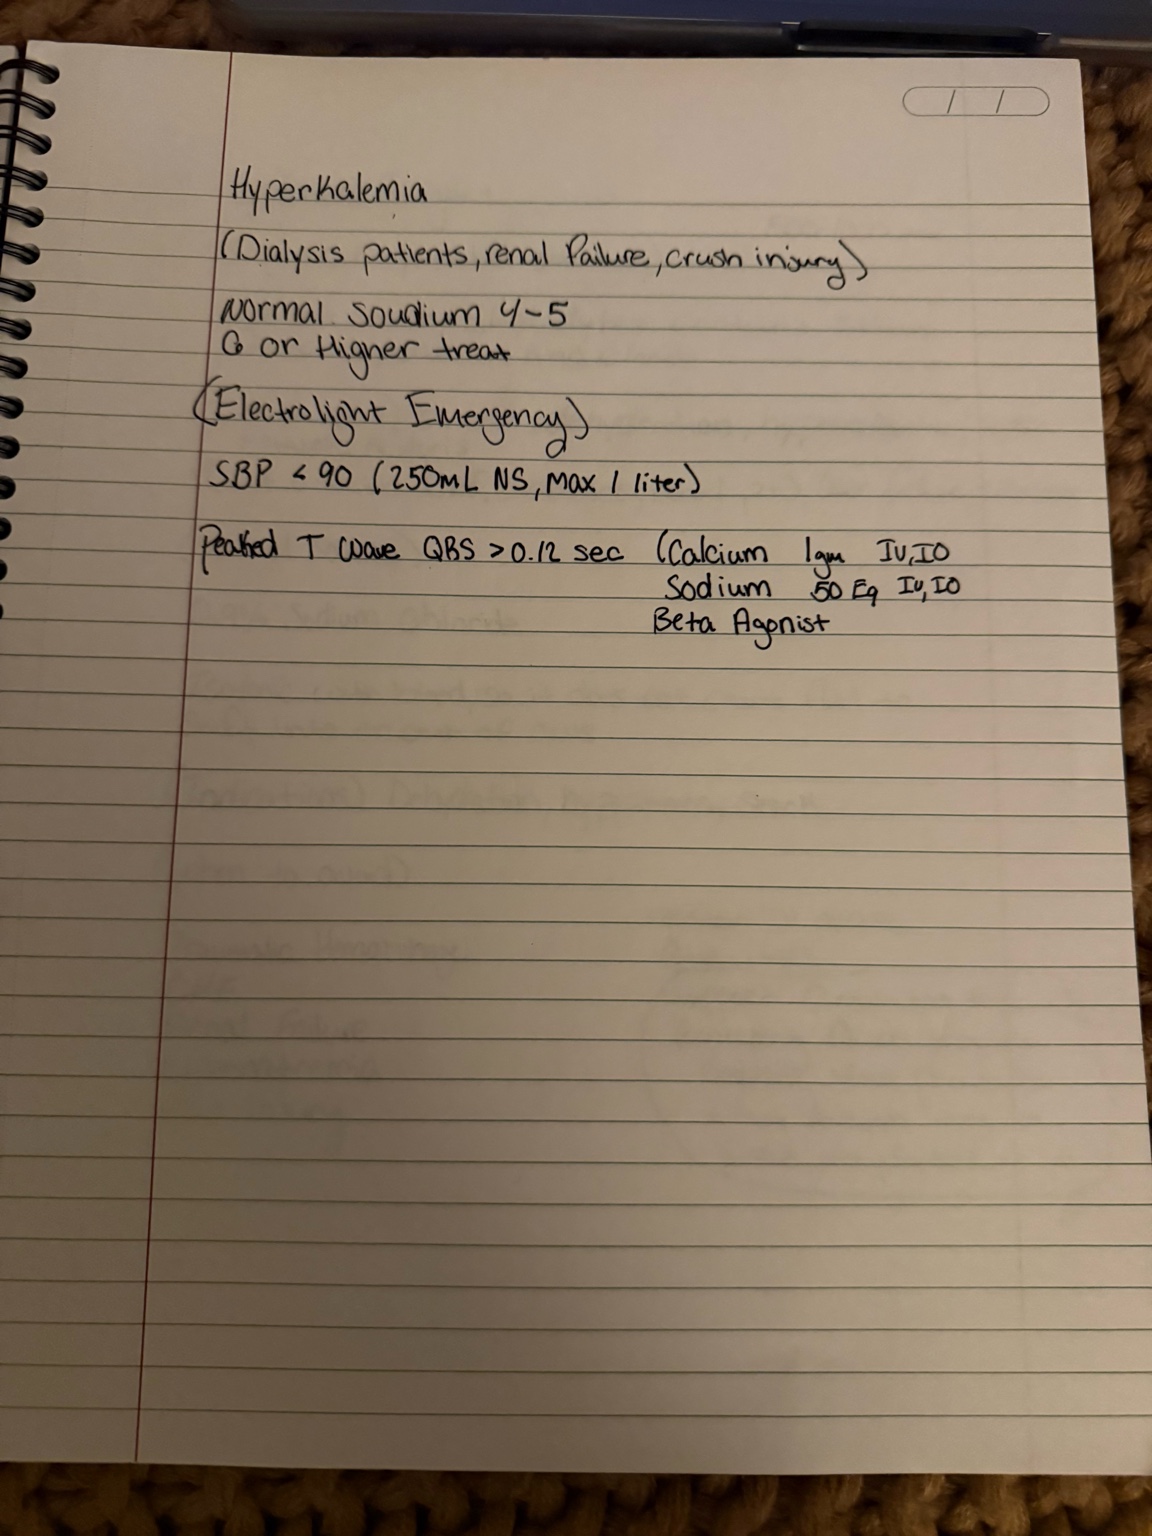 Hyperkalemia
(Dialysis patients, renal failure, crush injury)
Normal Soudium 4-5
6 or Higher treat
(Electrolight Emergency)
SBP < 90 (250mL NS, Max 1 liter)
Peaked T wave QRS > 0.12 sec (Calcium 1gm IV, IO
Sodium 50 Eq IV, IO
Beta Agonist